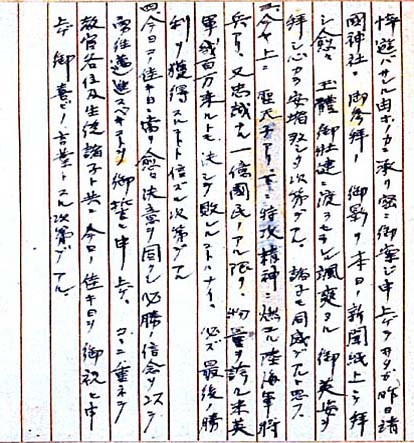 悔遊バサレル由ホノカニ承リ窃ニ御案ジ申上ゲテヲタガ昨日靖
國神社ニ御参拝ノ御影ヲ本日ノ新聞紙上ニテ拝
シ愈々玉體御壮健ニ渡ラセラレ颯爽タル御英姿ヲ
拝シ心カラ安堵致シタ次第デアル、諸子モ同感デアルト思フ、
三、今ヤ上ニ聖天子アリ下ニ特攻精神ニ燃ユル陸海軍将
兵アリ、又忠誠ナル一億國民ノアル限リ物量ヲ誇ル米英
軍或百万来ルトモ決シテ敗レルコトハナイ、必ズ最後ノ勝
利ヲ獲得スルコトト信ズル次第デアル
四、今日コノ佳キ日ニ當リ愈々決意ヲ固クシ必勝ノ信念ヲ以テ
勇往邁進スベキコトヲ御誓ヒ申上ゲ、ココニ重ネテ
教官各位及生徒諸子ト共ニ今日ノ佳キ日ヲ御祝ヒ申
上ゲ御喜ビノ言葉トスル次第デアル、